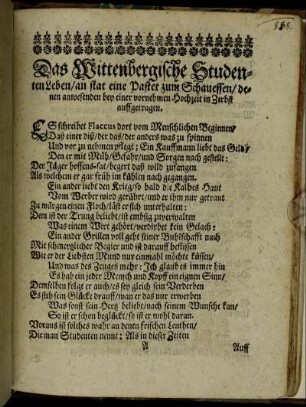 Das Wittenbergische Studen-
ten Leben/ an stat eine Pastet zum Schauessen/ de-
nen anwesenden bey einer vornehmen Hochzeit in Zerbst
auffgetragen.
ES schreibet Flaccus dort vom Menschlichen Beginnen/
Daß einer diß/ der das/ der anders was zu spinnen
Und vor zu nehmen pflegt; Ein Kauffmann liebt das Geld/
Den er mit Müh/ Gefahr/ und Sorgen nach gestellt:
Der Jäger hoffens-sat/ begert daß wild zufangen
Als welchem er gar früh im kühlen nach gegangen.
Ein ander liebt den Krieg/ so bald die Kalbes Haut
Vom Werber wird gerührt/ und er ihm nur getraut
Zu würgen einen Floch/ läst er sich unterhalten:
Dem ist der Trung beliebt/ ist embsig zuverwalten
Was einem Wirt gehört/ verdirbet kein Gelach:
Ein ander Grillen voll geht seiner Buhlschafft nach
Mit schmertzlicher Begier und ist darauff beflissen
Wie er der Liebsten Mund nur einmahl möcht küssen/
Und was des Zeuges mehr: Ich glaub es immer hin
Es hab ein jeder Mensch und Kopff ein eignen Sinn/
Demselben folgt er auch/ es sey gleich sein Verderben
Es steh sein Glücke drauff/ wan er das nur erwerben
Was sonst sein Hertz beliebt/ nach seinem Wunsche kan/
So ist er schon beglückt/ so ist er wohl daran.
Voraus ist solches wahr an denen frischen Leuthen/
Die man Studenten nennt: Als in dieser Zeiten
A
Auff